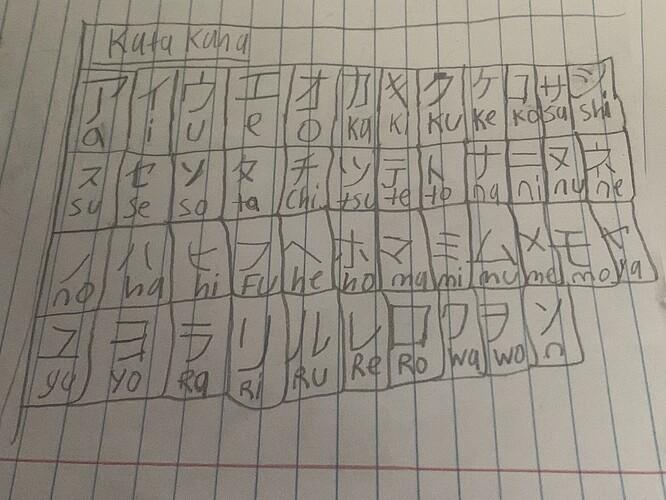 Katakana
ア イ ウ エ オ カ キ ク ケ コ サ シ
a i u e o ka ki ku ke ko sa shi
ス セ ソ タ チ ツ テ ト ナ ニ ヌ ネ
su se so ta chi tsu te to na ni nu ne
ノ ハ ヒ フ ヘ ホ マ ミ ム メ モ ヤ
no ha hi Fu he ho ma mi mu me mo ya
ユ ヨ ラ リ ル レ ロ ワ ヲ ン
yu yo Ra Ri Ru Re Ro wa wo n